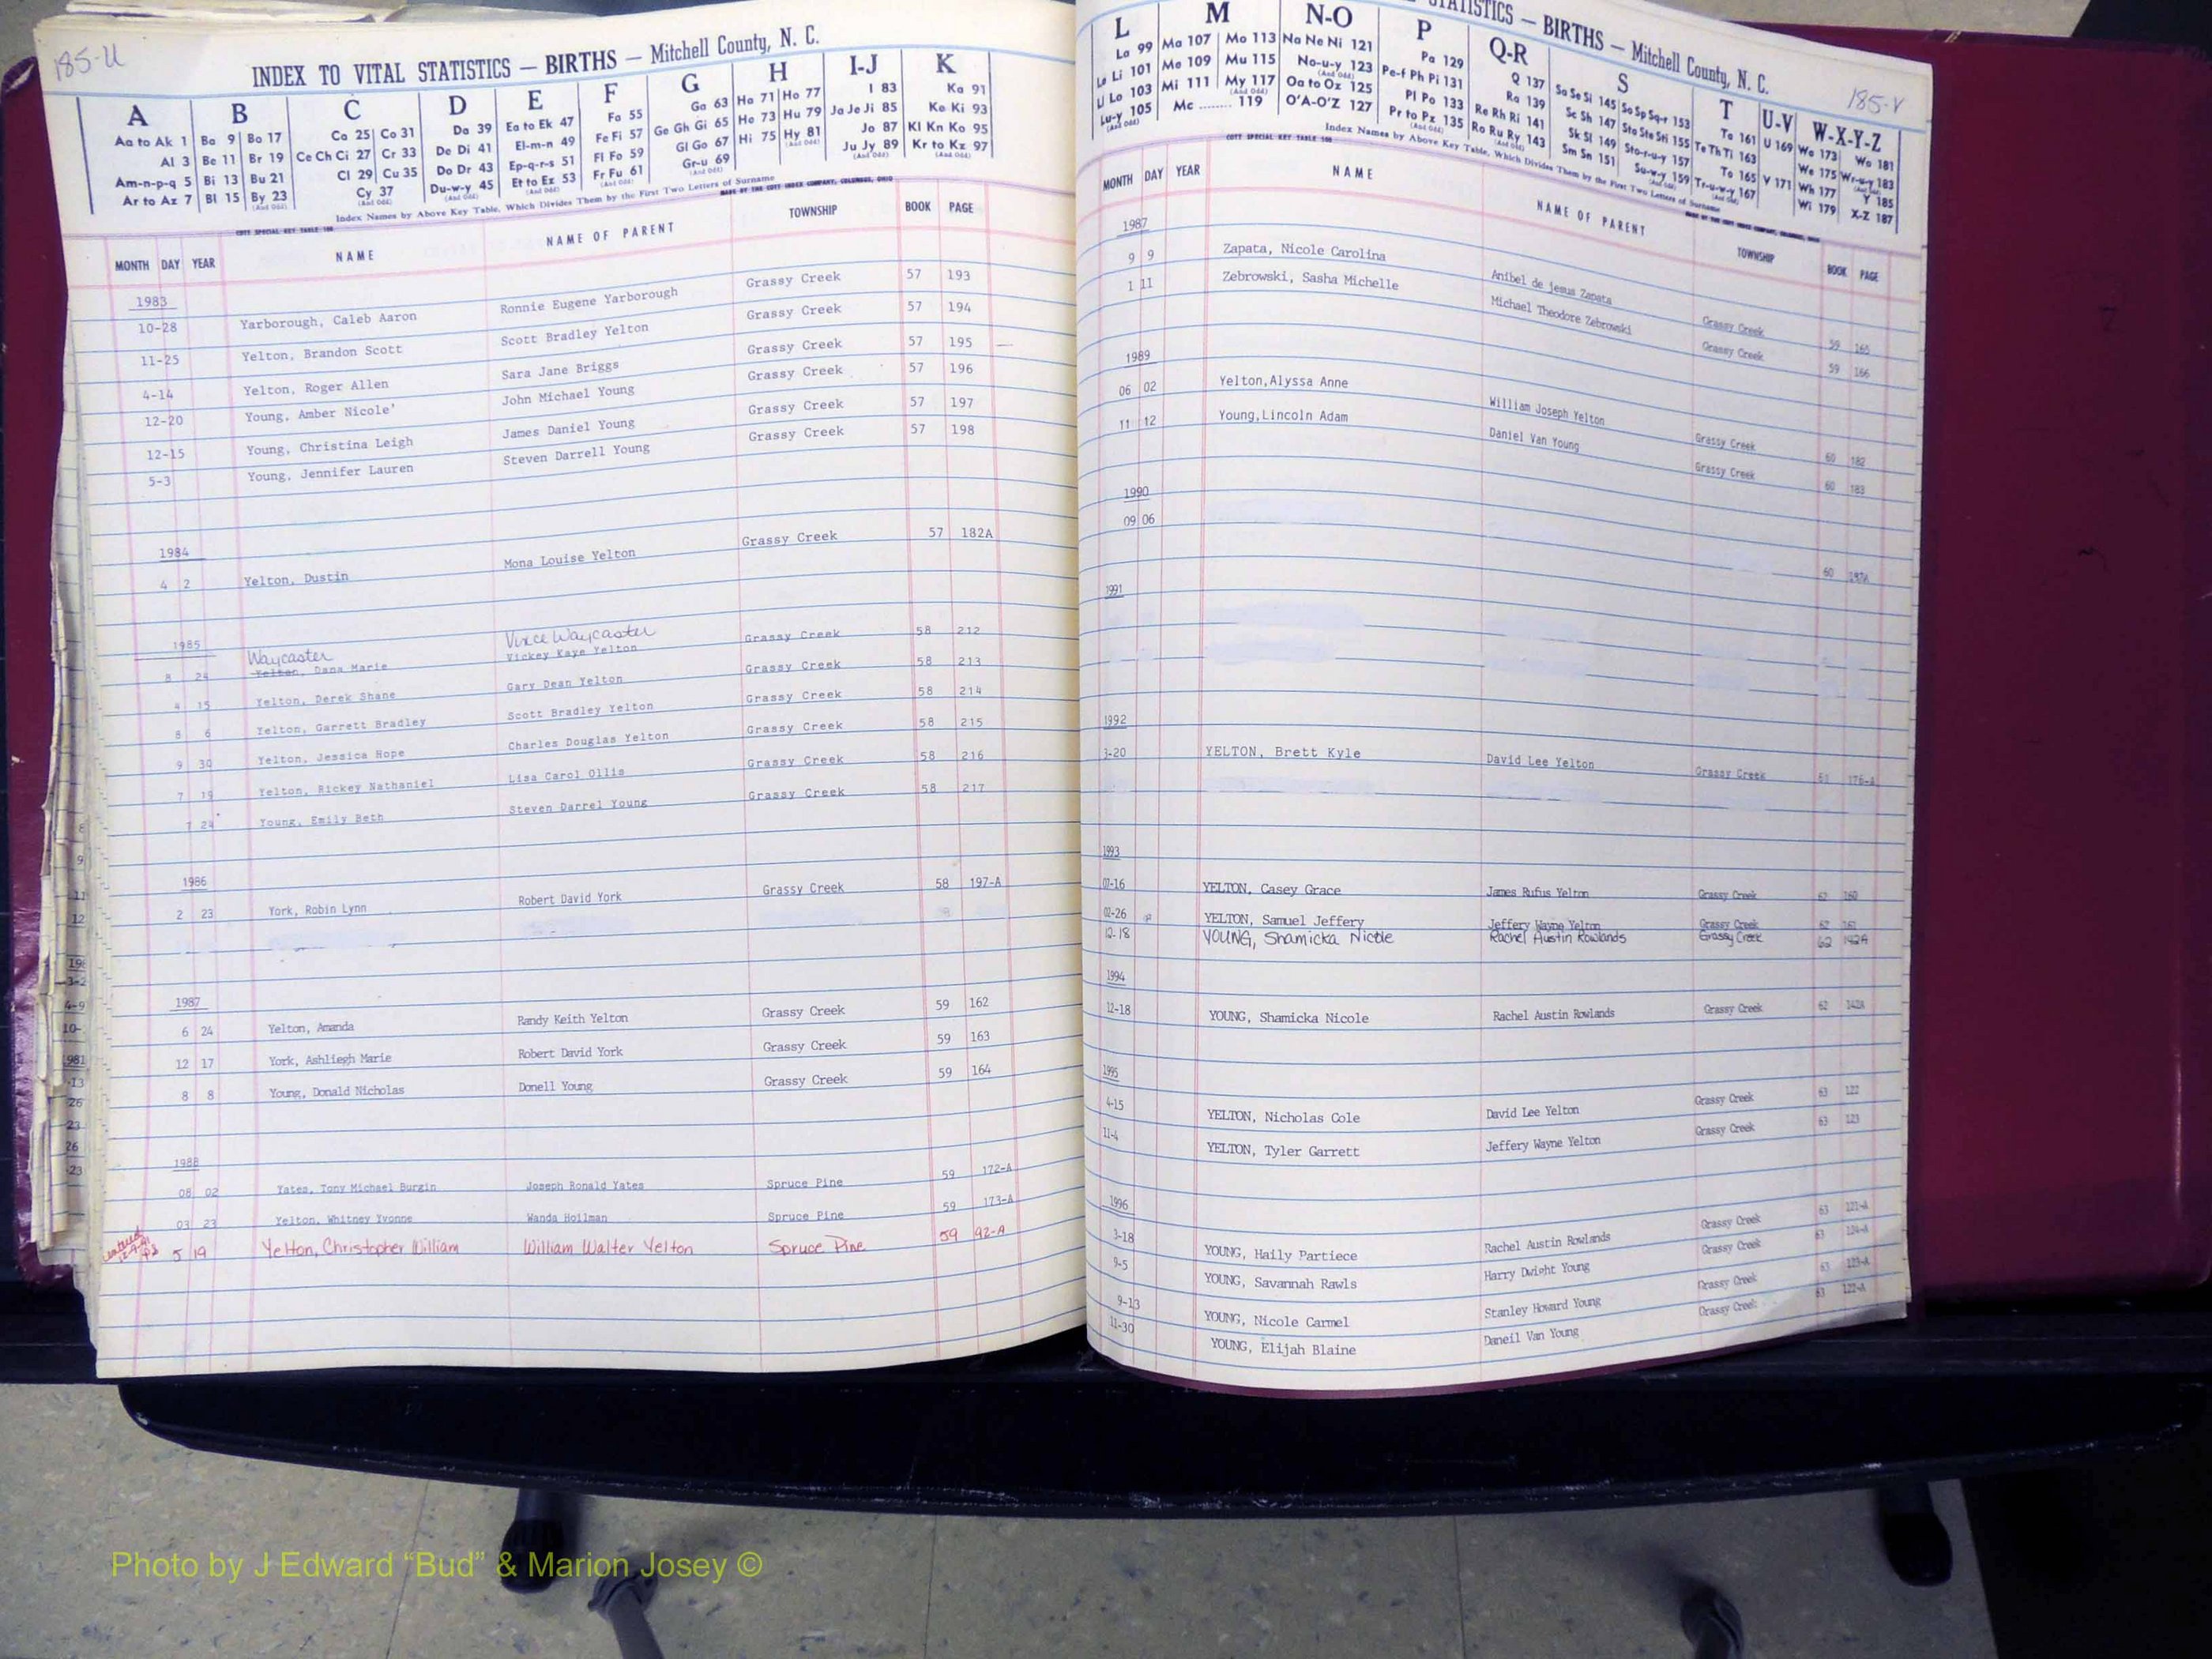 185-U
INDEX TO VITAL STATISTICS — BIRTHS — Mitchell County, N. C.
A B C D E F G H I-J K
Aa to Ak 1 Ba 9 Bo 17 Ca 25 Co 31 Da 39 Ea to Ek 47 Fa 55 Ga 63 Ha 71 Ho 77 I 83 Ka 91
Al 3 Be 11 Br 19 Ce Ch Ci 27 Cr 33 De Di 41 El-m-n 49 Fe Fi 57 Ge Gh Gi 65 He 73 Hu 79 Ja Je Ji 85 Ke Ki 93
Am-n-p-q 5 Bi 13 Bu 21 Cl 29 Cu 35 Do Dr 43 Ep-q-r-s 51 Fl Fo 59 Gl Go 67 Hi 75 Hy 81 Jo 87 Kl Kn Ko 95
Ar to Az 7 Bl 15 By 23 Cy 37 Du-w-y 45 Et to Ez 53 Fr Fu 61 Gr-u 69 Ju Jy 89 Kr to Kz 97
Index Names by Above Key Table, Which Divides Them by the First Two Letters of Surname
COTT SPECIAL KEY TABLE 100 MADE BY THE COTT INDEX COMPANY, COLUMBUS, OHIO
MONTH DAY YEAR NAME NAME OF PARENT TOWNSHIP BOOK PAGE
1983
10-28 Yarborough, Caleb Aaron Ronnie Eugene Yarborough Grassy Creek 57 193
11-25 Yelton, Brandon Scott Scott Bradley Yelton Grassy Creek 57 194
4-14 Yelton, Roger Allen Sara Jane Briggs Grassy Creek 57 195
12-20 Young, Amber Nicole' John Michael Young Grassy Creek 57 196
12-15 Young, Christina Leigh James Daniel Young Grassy Creek 57 197
5-3 Young, Jennifer Lauren Steven Darrell Young Grassy Creek 57 198
1984
4 2 Yelton, Dustin Mona Louise Yelton Grassy Creek 57 182A
1985
Waycaster Vince Waycaster
8 24 Yelton, Dana Marie Vickey Kaye Yelton Grassy Creek 58 212
4 15 Yelton, Derek Shane Gary Dean Yelton Grassy Creek 58 213
8 6 Yelton, Garrett Bradley Scott Bradley Yelton Grassy Creek 58 214
9 30 Yelton, Jessica Hope Charles Douglas Yelton Grassy Creek 58 215
7 19 Yelton, Rickey Nathaniel Lisa Carol Ollis Grassy Creek 58 216
7 24 Young, Emily Beth Steven Darrel Young Grassy Creek 58 217
1986
2 23 York, Robin Lynn Robert David York Grassy Creek 58 197-A
1987
6 24 Yelton, Amanda Randy Keith Yelton Grassy Creek 59 162
12 17 York, Ashliegh Marie Robert David York Grassy Creek 59 163
8 8 Young, Donald Nicholas Donell Young Grassy Creek 59 164
1988
08 02 Yates, Tony Michael Burgin Joseph Ronald Yates Spruce Pine 59 172-A
03 23 Yelton, Whitney Yvonne Wanda Hoilman Spruce Pine 59 173-A
5 19 Yelton, Christopher William William Walter Yelton Spruce Pine 59 92-A
STATISTICS — BIRTHS — Mitchell County, N. C.
185-V
L M N-O P Q-R S T U-V W-X-Y-Z
La 99 Ma 107 Mo 113 Na Ne Ni 121 Pa 129 Q 137 Sa Se Si 145 So Sp Sq-r 153 Ta 161 U 169 Wa 173 Wo 181
Le Li 101 Me 109 Mu 115 No-u-y 123 Pe-f Ph Pi 131 Ra 139 Sc Sh 147 Sta Ste Sti 155 Te Th Ti 163 We 175 Wr-u-y 183
Ll Lo 103 Mi 111 My 117 Oa to Oz 125 Pl Po 133 Re Rh Ri 141 Sk Sl 149 Sto-r-u-y 157 To 165 V 171 Wh 177 Y 185
Lu-y 105 Mc 119 O'A-O'Z 127 Pr to Pz 135 Ro Ru Ry 143 Sm Sn 151 Su-w-y 159 Tr-u-w-y 167 Wi 179 X-Z 187
Index Names by Above Key Table, Which Divides Them by the First Two Letters of Surname
COTT SPECIAL KEY TABLE 100
MONTH DAY YEAR NAME NAME OF PARENT TOWNSHIP BOOK PAGE
1987
9 9 Zapata, Nicole Carolina Anibel de jesus Zapata Grassy Creek 59 165
1 11 Zebrowski, Sasha Michelle Michael Theodore Zebrowski Grassy Creek 59 166
1989
06 02 Yelton,Alyssa Anne William Joseph Yelton Grassy Creek 60 182
11 12 Young,Lincoln Adam Daniel Van Young Grassy Creek 60 183
1990
09 06 60
1991
1992
3-20 YELTON, Brett Kyle David Lee Yelton Grassy Creek 61 176-A
1993
07-16 YELTON, Casey Grace James Rufus Yelton Grassy Creek 62 160
02-26 YELTON, Samuel Jeffery Jeffery Wayne Yelton Grassy Creek 62 161
12-18 YOUNG, Shamicka Nicole Rachel Austin Rowlands Grassy Creek 62 142A
1994
12-18 YOUNG, Shamicka Nicole Rachel Austin Rowlands Grassy Creek 62 142A
1995
4-15 YELTON, Nicholas Cole David Lee Yelton Grassy Creek 63 122
11-4 YELTON, Tyler Garrett Jeffery Wayne Yelton Grassy Creek 63 123
1996
3-18 YOUNG, Haily Partiece Rachel Austin Rowlands Grassy Creek 63 121-A
9-5 YOUNG, Savannah Rawls Harry Dwight Young Grassy Creek 63 124-A
9-13 YOUNG, Nicole Carmel Stanley Howard Young Grassy Creek 63 123-A
11-30 YOUNG, Elijah Blaine Daneil Van Young Grassy Creek 63 122-A
Photo by J Edward “Bud” & Marion Josey ©